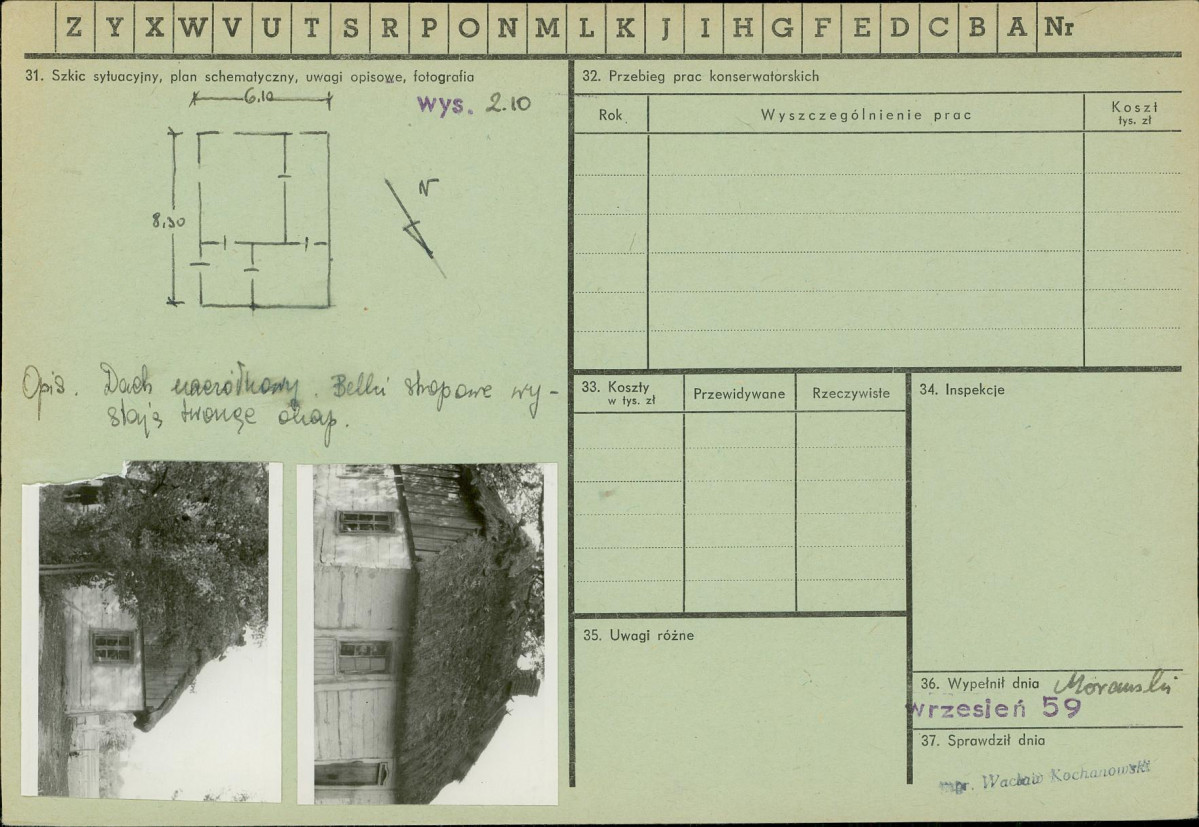 Z Y X W V U T S R P O N M L K J I H G F E D C B A Nr
31. Szkic sytuacyjny, plan schematyczny, uwagi opisowe, fotografia
6.10
wys. 2.10
8,30
N
Opis. Dach naczółkowy. Belki stropowe wy-
stają tworząc okap.
32. Przebieg prac konserwatorskich
Rok
Wyszczególnienie prac
Koszt
tys. zł
33. Koszty
w tys. zł
Przewidywane
Rzeczywiste
34. Inspekcje
35. Uwagi różne
36. Wypełnił dnia Morawski
wrzesień 59
37. Sprawdził dnia
mgr. Wacław Kochanowski